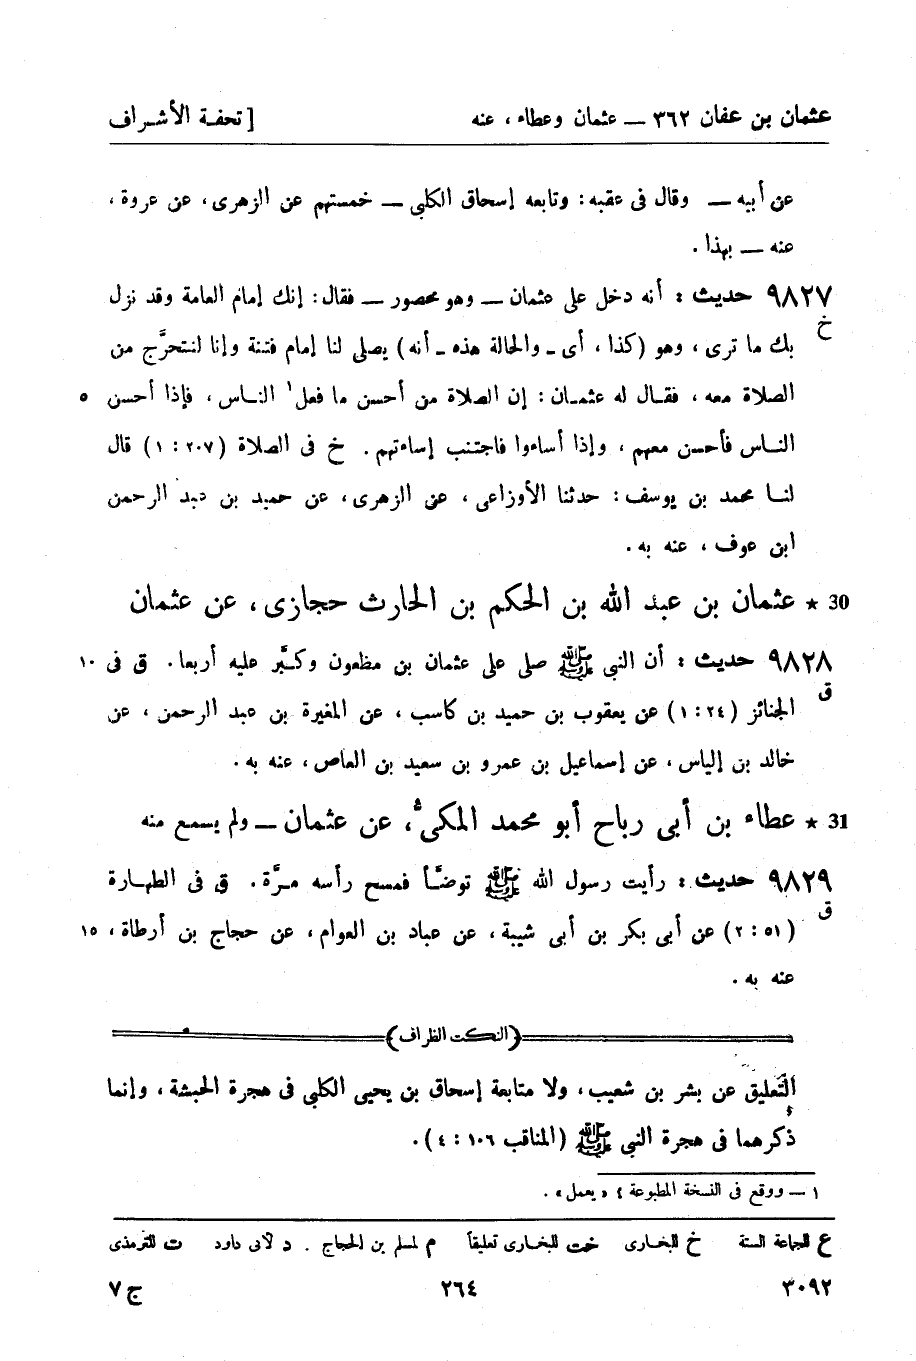 عثمان بن عفان ٣٦٢ — عثمان وعطاء ، عنه [ تحفة الأشراف
عن أبيه — وقال فى عقبه : وتابعه إسحاق الكلبى — خمستهم عن الزهرى ، عن عروة ،
عنه — بهذا .
٩٨٢٧ حديث : أنه دخل على عثمان — وهو محصور — فقال : إنك إمام العامة وقد نزل
خ
بك ما ترى ، وهو (كذا ، أى ـ والحالة هذه ـ أنه) يصلى لنا إمام فتنة وإنا لنتحرَّج من
الصلاة معه ، فقـال له عثمـان : إن الصلاة من أحسن ما فعل ١ النـاس ، فإذا أحسن ٥
النـاس فأحسن معهم ، وإذا أساءوا فاجتنب إساءتهم . خ فى الصلاة (٢٠٧ : ١) قال
لنـا محمد بن يوسف : حدثنا الأوزاعى ، عن الزهرى ، عن حميد بن عبد الرحمن
ابن عوف ، عنه به .
30 ★ عثمان بن عبد الله بن الحكم بن الحارث حجازى ، عن عثمان
٩٨٢٨ حديث : أن النبى ﷺ صلى على عثمان بن مظعون وكبَّر عليه أربعا . ق فى ١٠
ق
الجنائز (٢٤ : ١) عن يعقوب بن حميد بن كاسب ، عن المغيرة بن عبد الرحمن ، عن
خالد بن إلياس ، عن إسماعيل بن عمرو بن سعيد بن العاص ، عنه به .
31 ★ عطاء بن أبى رباح أبو محمد المكى ، عن عثمان — ولم يسمع منه
٩٨٢٩ حديث : رأيت رسول الله ﷺ توضَّأ فمسح رأسه مـرَّة . ق فى الطهـارة
ق
(٥١ : ٢) عن أبى بكر بن أبى شيبة ، عن عباد بن العوام ، عن حجاج بن أرطاة ، ١٥
عنه به .
(النكت الظراف)
التعليق عن بشر بن شعيب ، ولا متابعة إسحاق بن يحيى الكلبى فى هجرة الحبشة ، وإنما
ذكرهما فى هجرة النبى ﷺ (المناقب ١٠٦ : ٤) .
١ — ووقع فى النسخة المطبوعة ؛ « يعمل » .
ع للجماعة الستة خ للبخارى خت للبخارى تعليقاً م لمسلم بن الحجاج . د لأبى داود ت للترمذى
٣٠٩٢ ٢٦٤ ج ٧